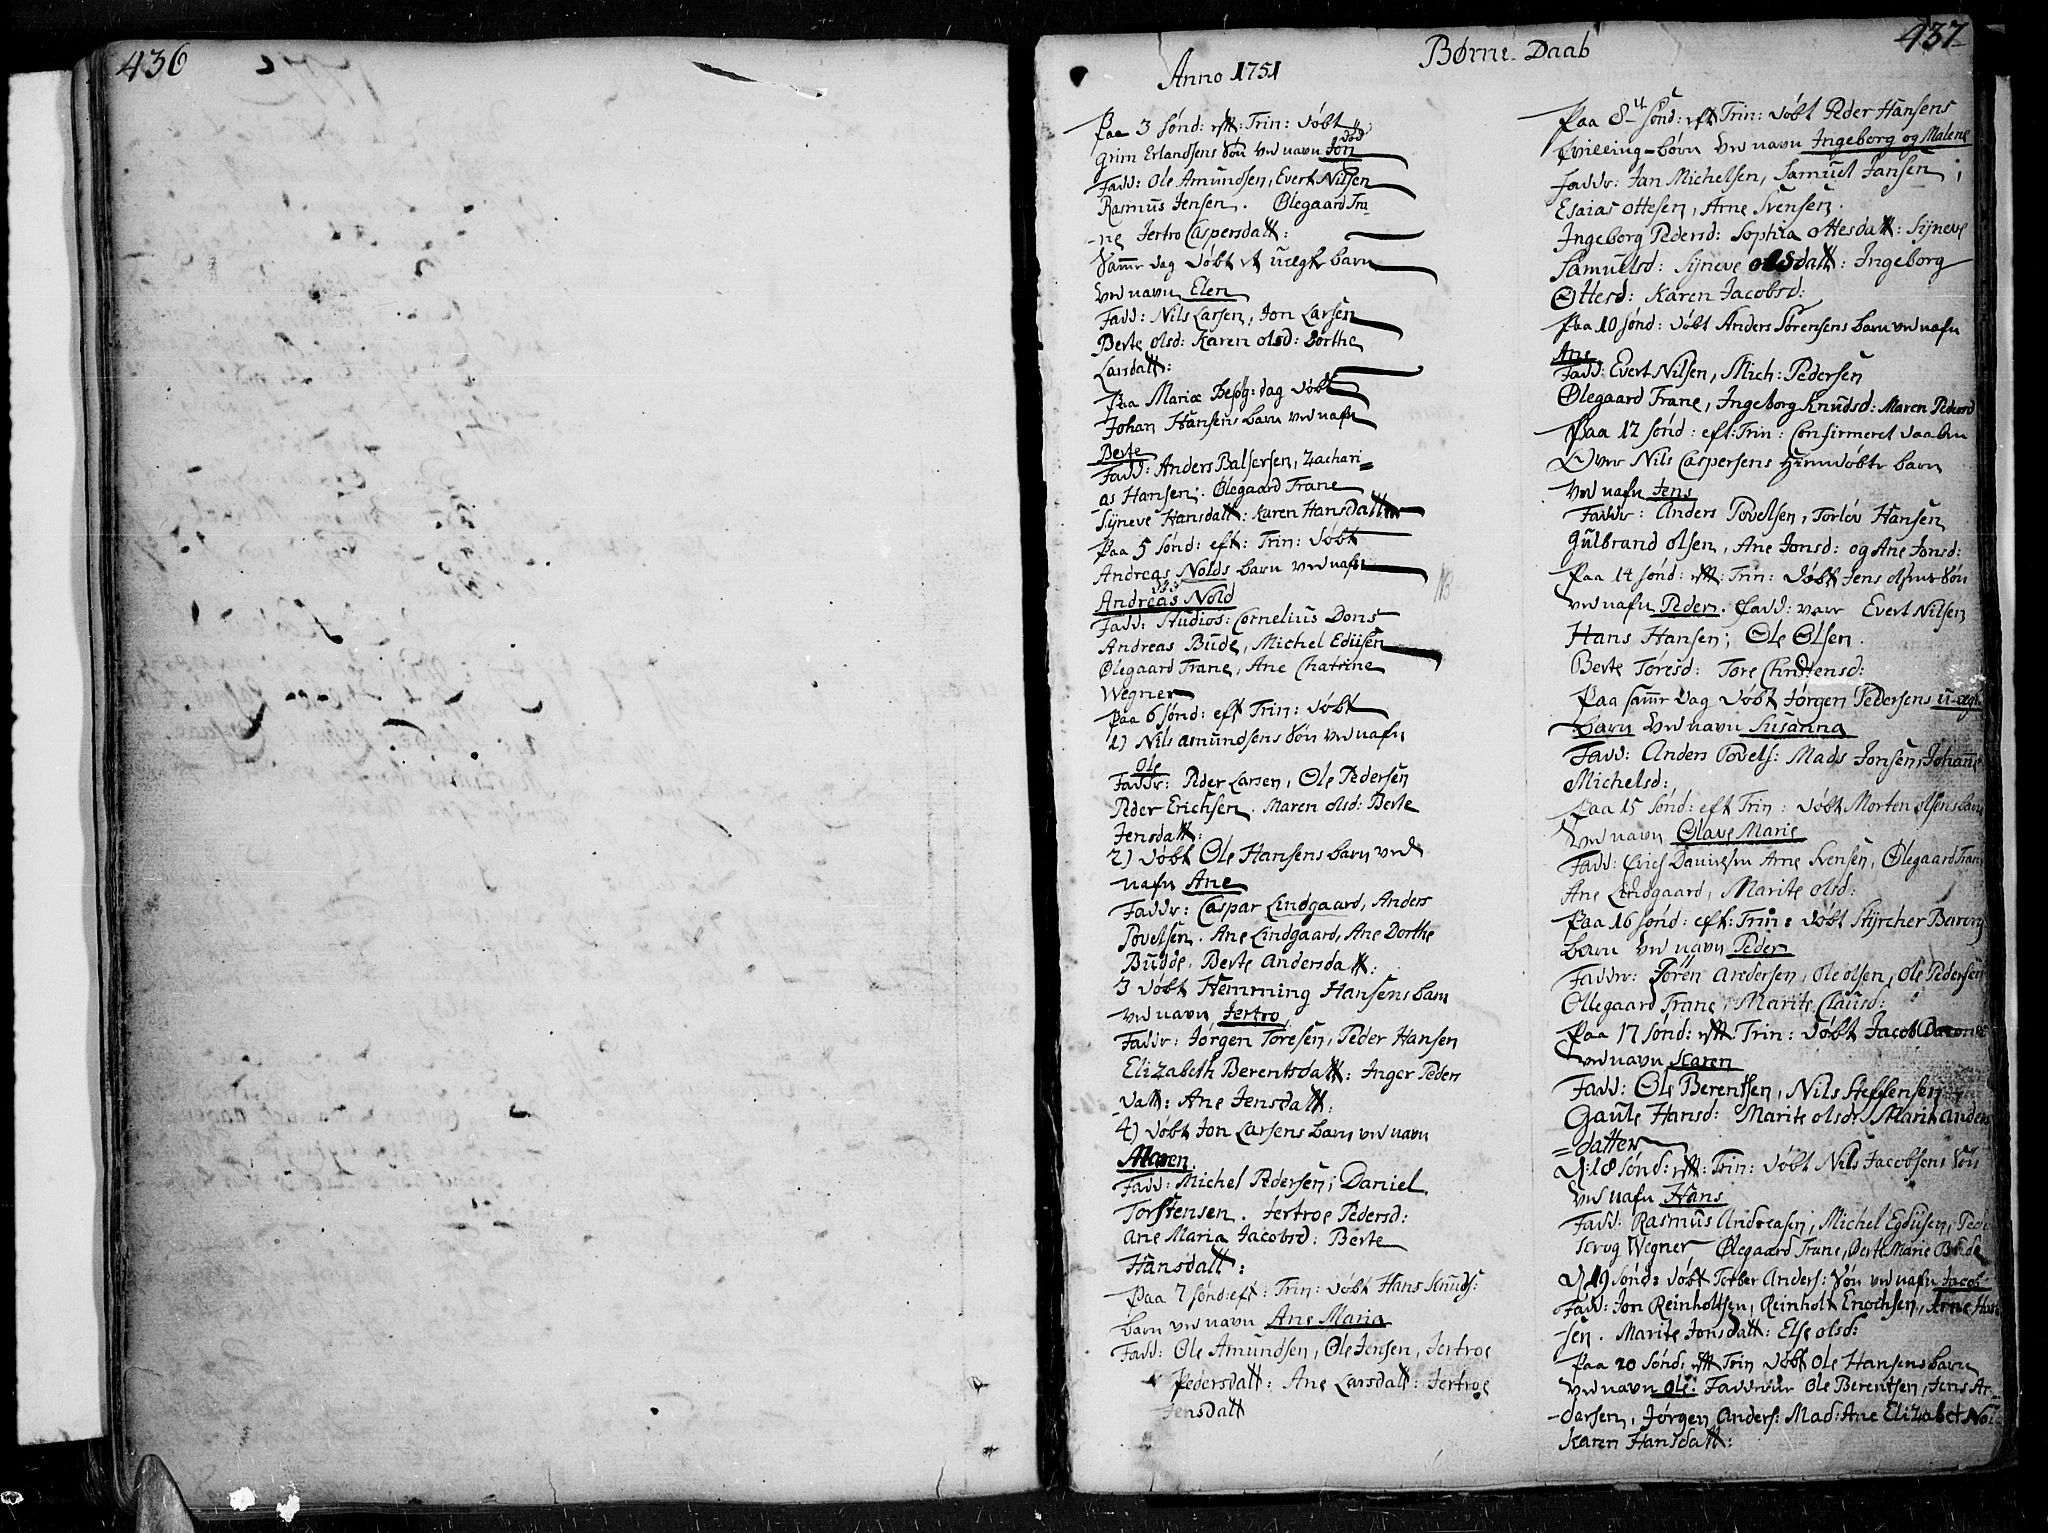 436
437
Børne-Daab
Anno 1751
Paa 3 Sønd: eft: Trin: døbt
Grim Erlandsens Søn ved navn Jon
Fadd: Ole Amundsen, Evert Nilsen
Rasmus Jensen. Ølegaard Tra-
-ne Jertro Caspersdatt:
Samme dag døbt et uægte barn
ved navn Elen
Fadd: Nils Larsen, Jon Larsen
Berte olsd: Karen olsd: Dorthe
Larsdatt:
Paa Mariæ Besøg: dag døbt
Johan Hansens barn ved nafn
Berte
Fadd: Anders Balsersen, Zachari=
as Hansen; Ølegaard Trane
Sÿneve Hansdatt: Karen Hansdatter
Paa 5 Sønd: eft: Trin: døbt
Andreas Nolds barn ved nafn
Andreas Nold
Fadd: Studios: Cornelius Dons
Andreas Bude, Michel Ediisen
Ølegaard Trane, Ane Chatrine
Wegner
Paa 6 Sønd: eft Trin: døbt
1) Nils Amundsens Søn ved nafn
Ole
Faddr: Peder Larsen, Ole Pedersen
Peder Erichsen. Maren olsd: Berte
Jensdatt:
2) døbt Ole Hansens barn ved
nafn Ane
Faddr: Caspar Lindgaard, Anders
Povelsen. Ane Lindgaard, Ane Dorthe
Budde, Berte Andersdatt:
3 døbt Hemming Hansens barn
ved navn Jertro
Faddr: Jørgen Toresen, Peder Hansen
Elizabeth Berentsdatt: Inger Peders
datt: Ane Jensdatt:
4) døbt Jon Larsens barn ved navn
Maren
Fadd: Michel Pedersen; Daniel
Torstensen. Jertroe Pedersd:
Ane Maria Jacobsd: Berte
Hansdatt:
Paa 7 Sønd: eft: Trin: døbt Hans Knuds:
barn ved navn Ane Maria
Fadd: Ole Amundsen, Ole Jensen, Jertroe
Pedersdatt: Ane Larsdatt: Jertroe
Jensdatt
Paa 8de Sønd: eft Trin: døbt Peder Hansens
tvilling-børn ved navn Ingeborg og Malene
Faddr: Jan Michelsen, Samuel Jansen;
Esaias Ottesen, Arne Svensen.
Ingeborg Pedersd: Sophia Ottesdatt: Sÿneve
Samuelsd: Sÿneve olsdatt: Ingeborg
Ottesd: Karen Jacobsd:
Paa 10 Sønd: døbt Anders Sørensens barn ved nafn
Ane
Fadd: Evert Nilsen, Mich: Pedersen
Ølegaard Trane, Ingeborg Knudsd: Maren Pedersd
Paa 12 Sønd: eft: Trin: Confirmeret daaben
Over Nils Caspersens hiemdøbte barn
ved nafn Jens
Faddr: Anders Povelsen, Torlev Hansen
Gulbrand olsen, Ane Jonsd: og Ane Jonsd:
Paa 14 Sønd: eft: Trin: Døbt Jens olsens Søn
ved nafn Peder. Fadd: vare Evert Nilsen
Hans Hansen; Ole Olsen.
Berte Toresd: Tore Christensd:
Paa samme dag døbt Jørgen Pedersens u-ægte
barn ved navn Susanna
Fadd: Anders Povels: Mads Jonsen, Johanne
Michelsd:
Paa 15 Sønd: eft Trin: døbt Morten olsens barn
ved navn Olave Marie
Fadd: Erich Arne Svensen, Ølegaard Trane
Ane Lindgaard, Marite olsd:
Paa 16 Sønd: eft: Trin: døbt Stÿrcher
barn ved navn Peder
Faddr: Søren Andersen, Ole olsen, Ole Pedersen
Ollegaard Trane, Marite Clausd:
Paa 17 Sønd: eft Trin: døbt Jacob
ved navn Karen
Fadd: Ole Berentsen, Nils Steffensen
Gaute Hansd: Marite olsd: Marit anders
=datter
D: 18 Sønd: eft: Trin: døbt Nils Jacobsens Søn
ved nafn Hans
Fadd: Rasmus Andreasen, Michel Egdiisen, Peder
Krog Wegner Ølegaard Trane, Berte Marie Bude
D 19 Sønd: døbt Torber Anders: Søn ved nafn Jacob
Fadd: Jon Reinholtsen, Reinholt Enochsen, Arne Han
-sen. Marite Jonsdatt: Else olsd:
Paa 20 Sønd: eft Trin døbt Ole Hansens barn
ved navn Ole: Fadderne Ole Berentsen, Jens An-
-dersen, Jørgen Anders: Mad: Ane Elizabet Nold
Karen Hansdatt: